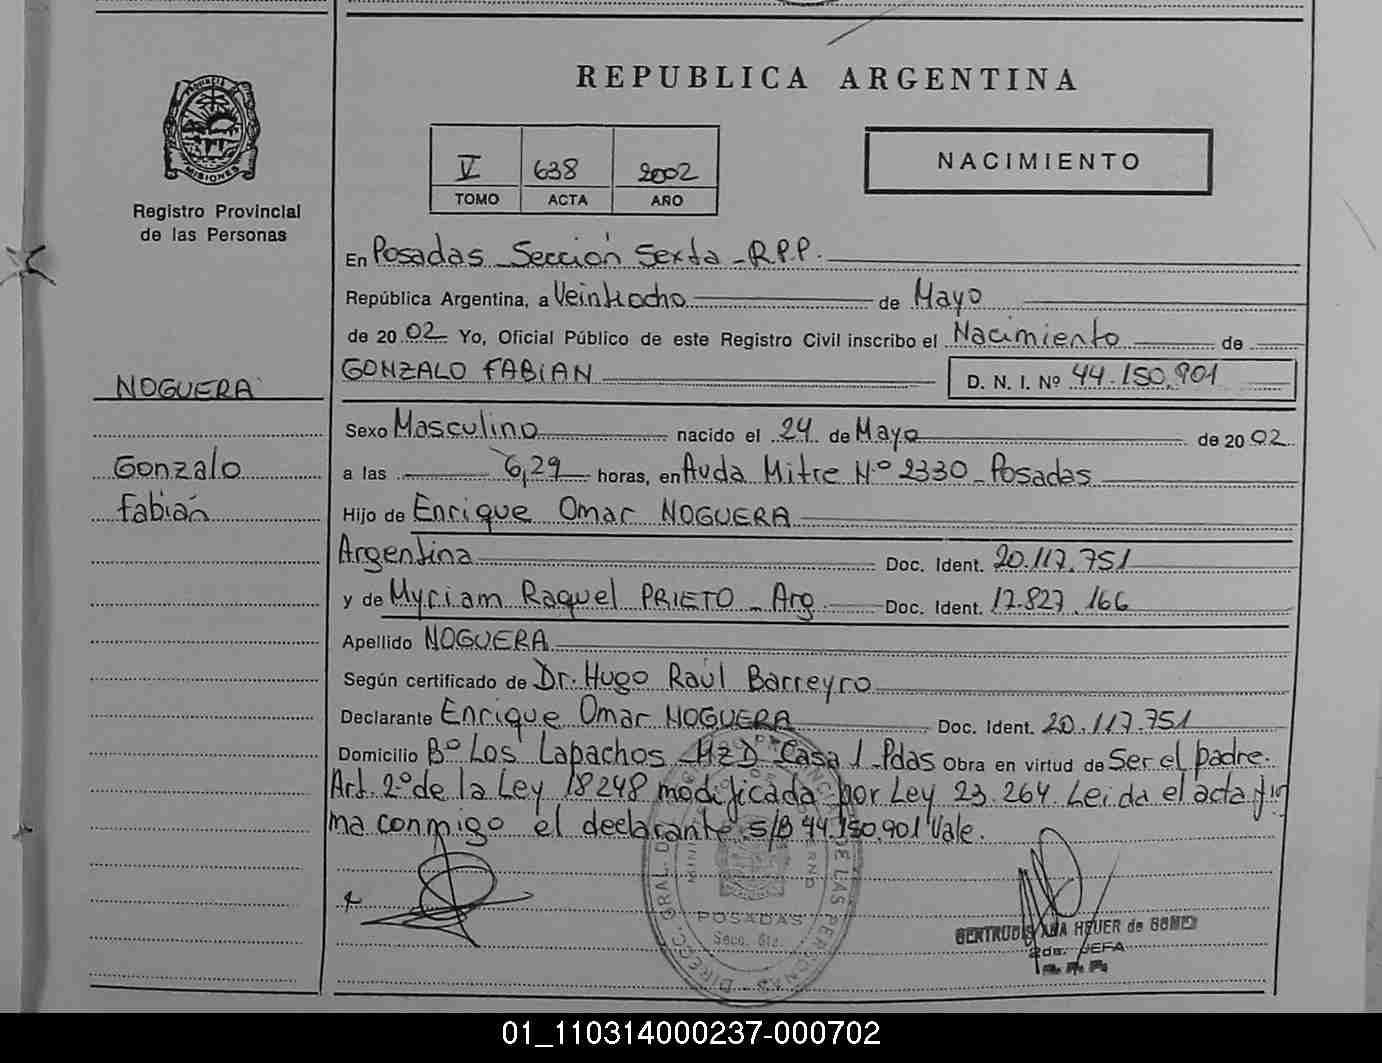 REPUBLICA ARGENTINA
PROVINCIA DE
MISIONES
Registro Provincial
de las Personas
V 638 2002
TOMO ACTA AÑO
NACIMIENTO
En Posadas Sección Sexta - R.P.P.
República Argentina, a Veintiocho de Mayo
de 20 02 Yo, Oficial Público de este Registro Civil inscribo el Nacimiento de
GONZALO FABIAN D. N. I. Nº 44.150.901
NOGUERA
Gonzalo
Fabián
Sexo Masculino nacido el 24 de Mayo de 20 02
a las 6,29 horas, en Avda Mitre Nº 2330 - Posadas
Hijo de Enrique Omar NOGUERA
Argentina Doc. Ident. 20.117.751
y de Myriam Raquel PRIETO - Arg Doc. Ident. 17.827.166
Apellido NOGUERA
Según certificado de Dr. Hugo Raúl Barreyro
Declarante Enrique Omar NOGUERA Doc. Ident. 20.117.751
Domicilio Bº Los Lapachos - MzD Casa 1 - Pdas Obra en virtud de Ser el padre.
Art. 2º de la Ley 18248 modificada por Ley 23.264. Leida el acta fir
ma conmigo el declarante. S/B 44.150.901 Vale.
DIRECC. GRAL. DE LAS PERSONAS
POSADAS
Secc. 6ta.
GERTRUDIS ANA HEUER de
2da. JEFA
R.P.P.
01_110314000237-000702